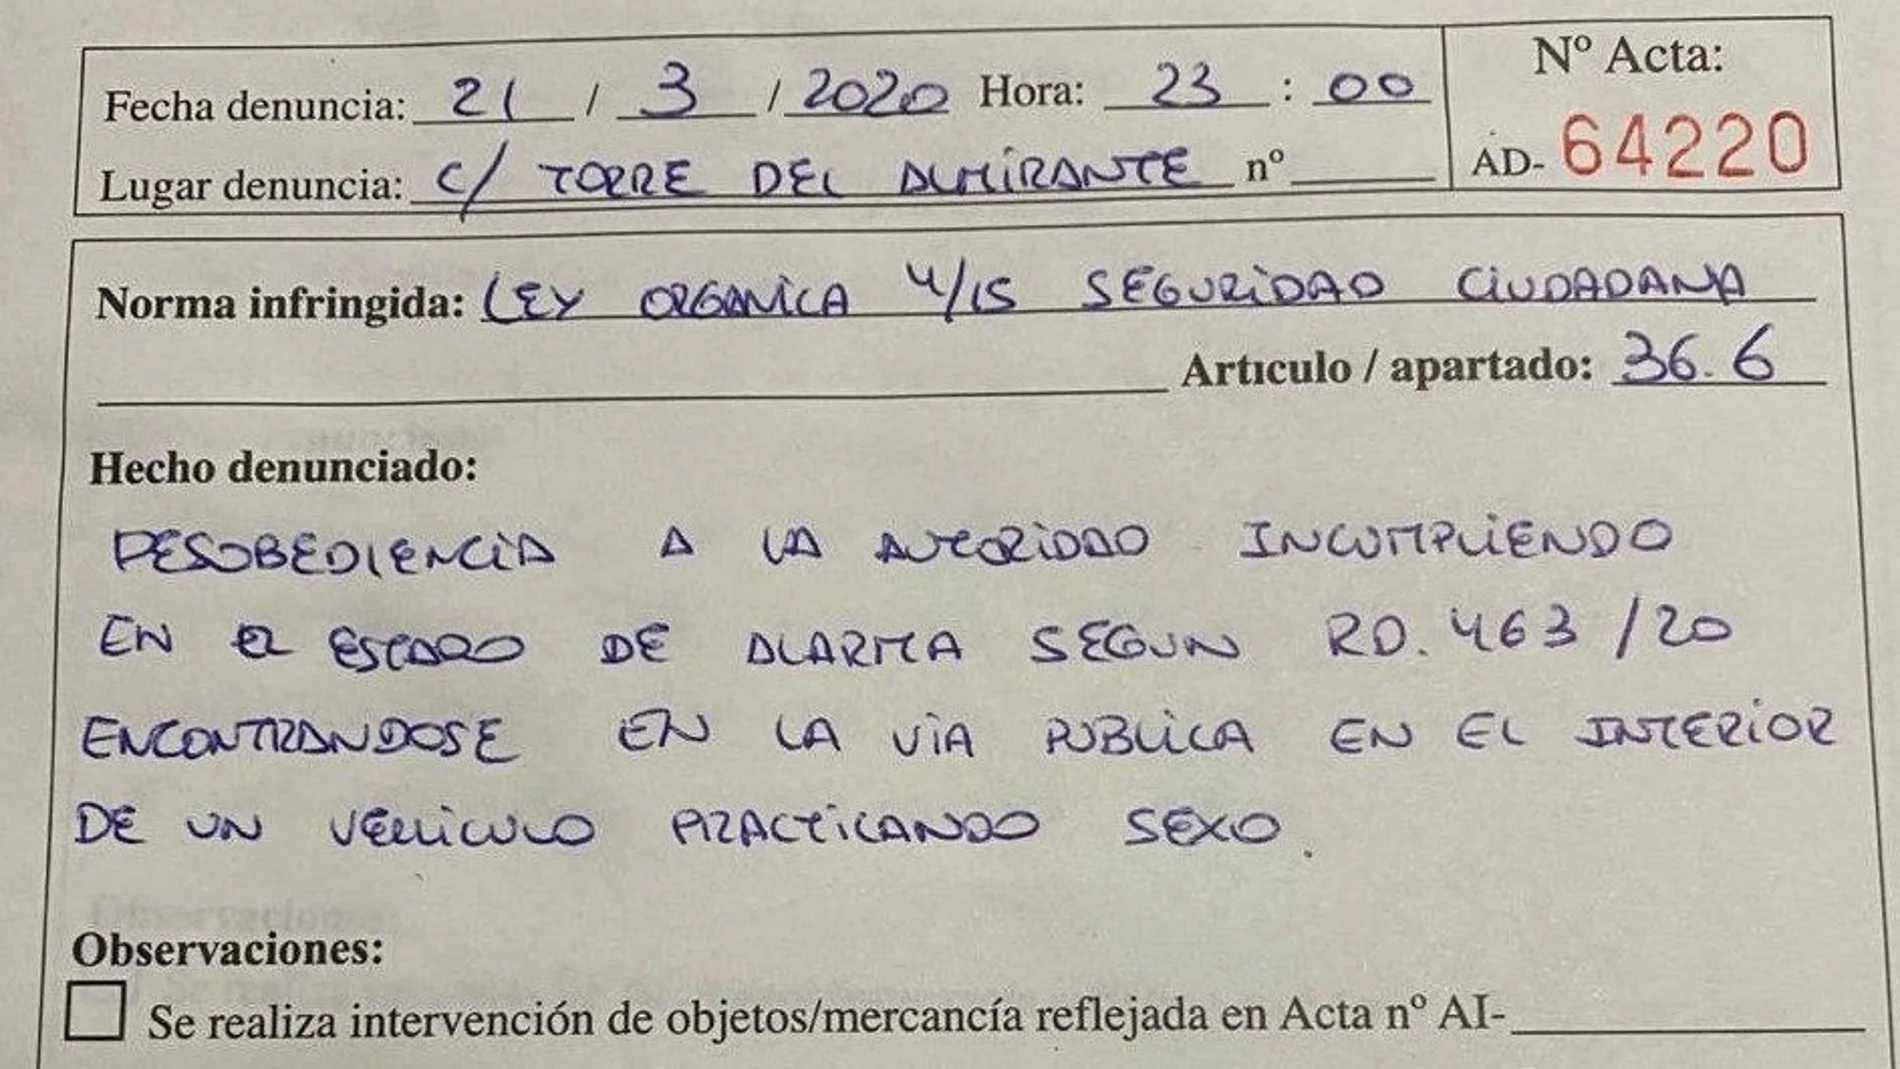 Fecha denuncia: 21 / 3 / 2020 Hora: 23 : 00
Nº Acta:
AD- 64220
Lugar denuncia: C/ TORRE DEL ALMIRANTE nº
Norma infringida: LEY ORGANICA 4/15 SEGURIDAD CIUDADANA
Artículo / apartado: 36.6
Hecho denunciado:
DESOBEDIENCIA A LA AUTORIDAD INCUMPLIENDO
EN EL ESTADO DE ALARMA SEGUN RD. 463/20
ENCONTRANDOSE EN LA VIA PUBLICA EN EL INTERIOR
DE UN VEHICULO PRACTICANDO SEXO.
Observaciones:
Se realiza intervención de objetos/mercancía reflejada en Acta nº AI-